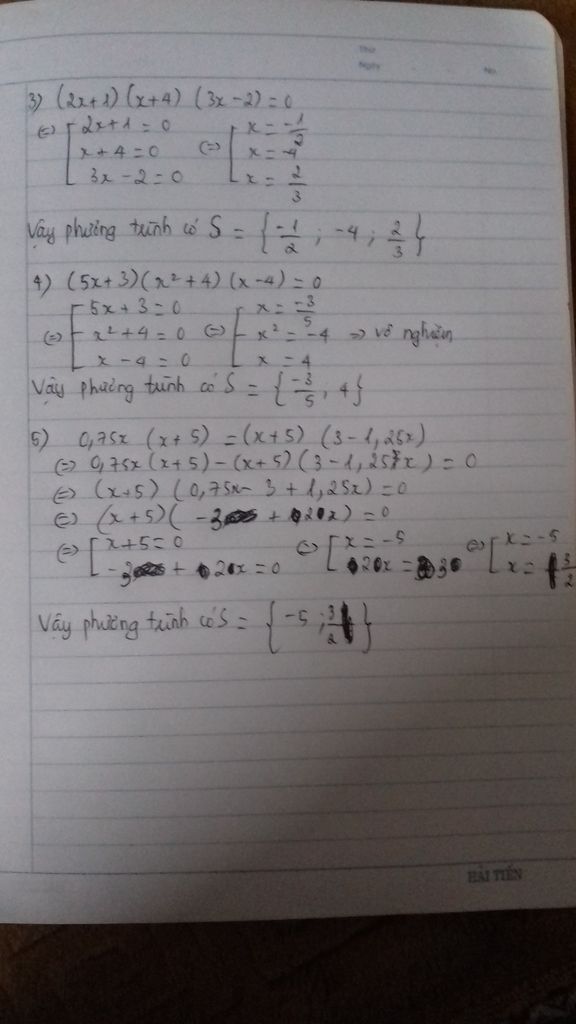 Thứ
Ngày
No.
3) (2x+1)(x+4)(3x-2)=0
⇔ [ 2x+1=0 ⇔ [ x = -1/2
x+4=0 x = -4
3x-2=0 x = 2/3
Vậy phương trình có S = { -1/2 ; -4 ; 2/3 }
4) (5x+3)(x²+4)(x-4)=0
⇔ [ 5x+3=0 ⇔ [ x = -3/5
x²+4=0 x² = -4 => vô nghiệm
x-4=0 x = 4
Vậy phương trình có S = { -3/5 ; 4 }
5) 0,75x (x+5) = (x+5) (3-1,25x)
⇔ 0,75x (x+5) - (x+5) (3-1,25x) = 0
⇔ (x+5) (0,75x - 3 + 1,25x) = 0
⇔ (x+5) ( -3 + 2x) = 0
⇔ [ x+5=0 ⇔ [ x = -5 ⇔ [ x = -5
-3 + 2x = 0 2x = 3 x = 3/2
Vậy phương trình có S = { -5 ; 3/2 }
HẢI TIẾN